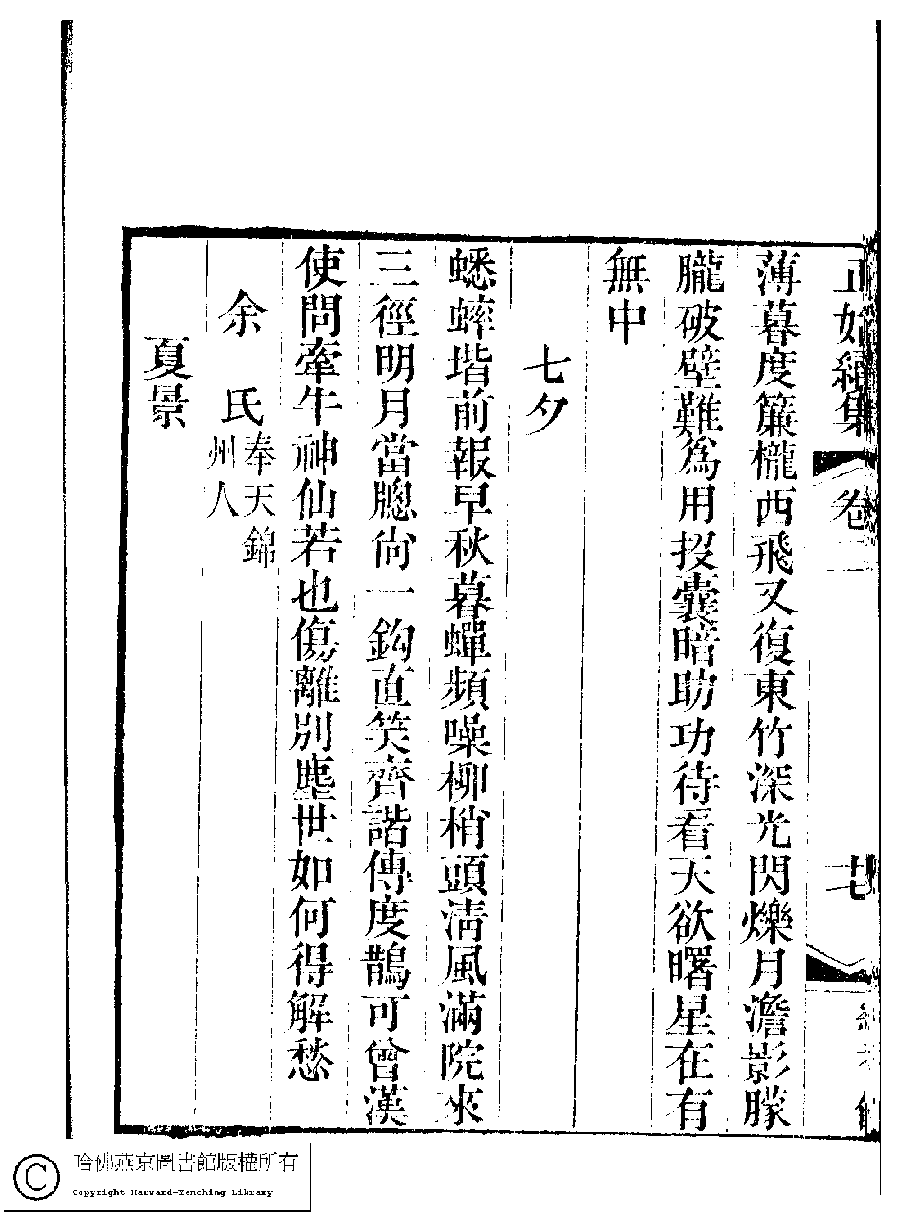 正始續集 卷二
薄暮度簾櫳西飛又復東竹深光閃爍月澹影朦
朧破壁難爲用投囊暗助功待看天欲曙星在有
無中
七夕
蟋蟀堦前報早秋暮蟬頻噪柳梢頭淸風滿院來
三徑明月當牕尙一鈎直笑齊諧傳度鵲可曾漢
使問牽牛神仙若也傷離別塵世如何得解愁
余 氏 奉天錦
州人
夏景
哈佛燕京圖書館版權所有
Copyright Harvard-Yenching Library